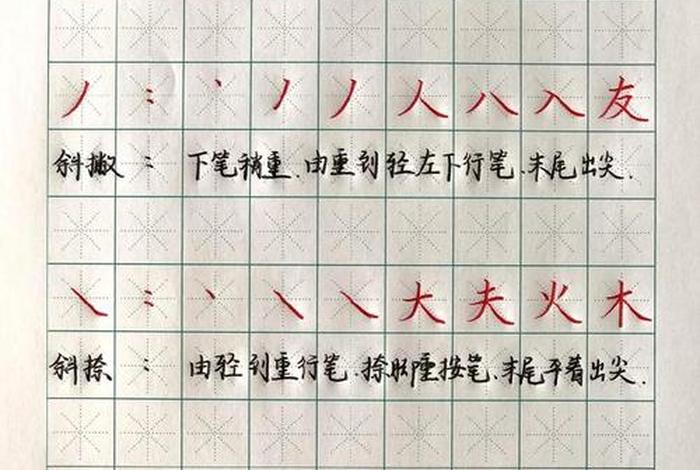 丿：丶丿丿人八入友
斜撇：下笔稍重、由重到轻左下行笔、末尾出尖.
㇏：丶㇏㇏大夫火木
斜捺：由轻到重行笔、捺脚重按笔、末尾平着出尖.